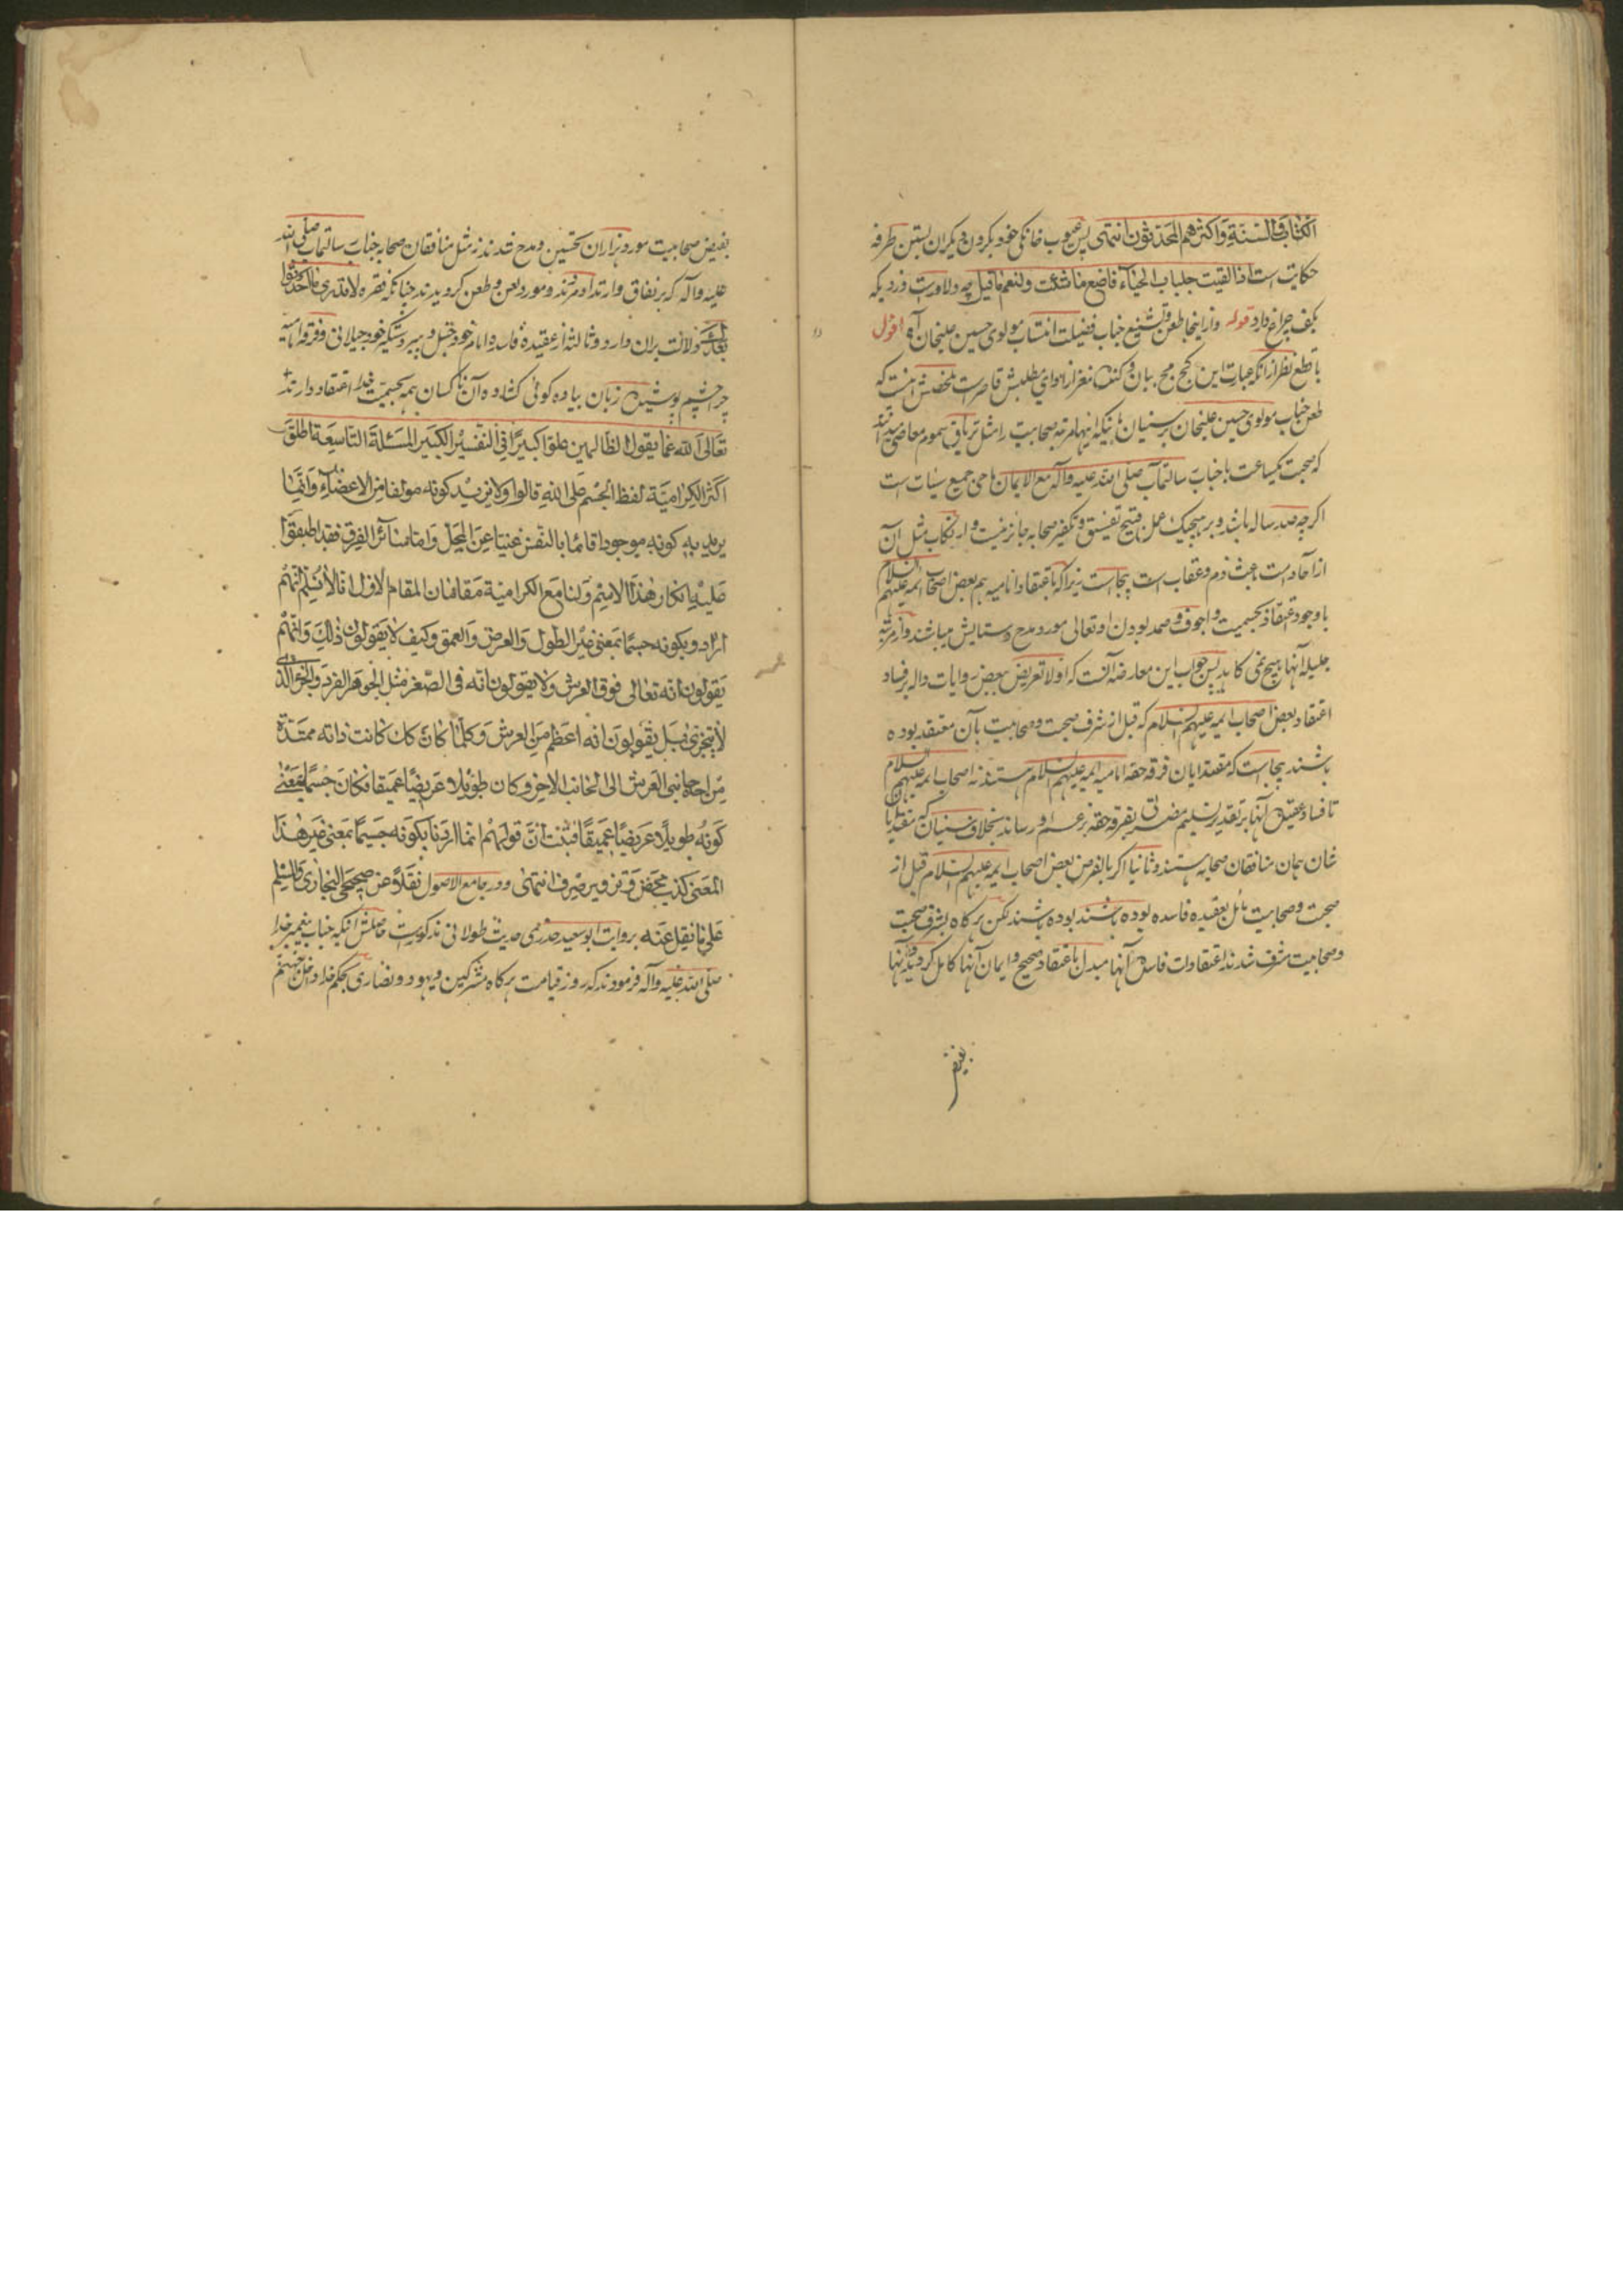 الکتاب والسنة واکثرهم المحدثون انتهی پس عیوب خانگی خود بکردن دیگران بستن طرفه
حکایت است اذا القیت جلباب الحیاء فاصنع ما شئت ولنعم ما قیل چه دلاورست دزدیکه
بکف چراغ دارد قوله وازاینجا طعن وتشنیع جناب فضیلت انتساب مولوی حسین علیخان آه اقول
با قطع نظر از آنکه عبارت این کج مج بیان از ادای مطلبش قاصر است ملخصش اینست که
طعن جناب مولوی حسین علیخان بر سنیان باینکه اینها مرتبه صحابیت را مثل تریاق سموم معاصی میدانند
که صحبت یکساعت با جناب رسالتمآب صلی الله علیه وآله مع الایمان ماحی جمیع سیئات است
اگرچه صد ساله باشد وبر هیچیک عمل قبیح تفسیق وتکفیر صحابه جائز نیست وارتکاب مثل آن
از آحاد امت باعث ذم وعقاب است بیجاست زیرا که باعتقاد امامیه هم بعض اصحاب ائمه علیهم السلام
با وجود اعتقاد بجسمیت واجوف وصمد بودن او تعالی مورد مدح وستایش میباشند واز مرتبه
جلیله آنها هیچ نمی کاهد پس جواب این معارضه آنست که اولا تعریض ببعض روایات داله بر فساد
اعتقاد بعض اصحاب ایمه علیهم السلام که قبل از شرف صحبت وصحابیت بآن معتقد بوده
باشند بیجاست که مقتدایان فرقه حقه امامیه ایمه علیهم السلام هستند نه اصحاب ایمه علیهم السلام
تا فساد عقیده آنها بر تقدیر تسلیم مضرتی بفرقه حقه بزعم او رساند بخلاف سنیان که مقتدایا
شان همان منافقان صحابه هستند وثانیا اگر بالفرض بعض اصحاب ایمه علیهم السلام قبل از
صحبت وصحابیت مائل بعقیده فاسده بوده باشند بوده باشند لکن هرگاه بشرف صحبت
وصحابیت مشرف شدند اعتقادات فاسده آنها مبدل باعتقاد صحیح وایمان آنها کامل گردید وآنها
بفیض
بفیض صحابیت مورد هزاران تحسین ومدح شدند نه مثل منافقان صحابه جناب رسالتمآب صلی الله
علیه وآله که بر نفاق وارتداد مردند ومورد لعن وطعن گردیدند چنانکه فقره لا تدری ما احدثوا
بعدک دلالت بران دارد وثالثا از عقیده فاسده امام خود حنبل وپیر دستگیر خود جیلانی وفرقه
چرا چشم پوشیده زبان بیاوه گوئی کشاده آن ناکسان همه بجسمیت خدا اعتقاد دارند
تعالی الله عما یقول الظالمین علوا کبیرا فی التفسیر الکبیر المسئلة التاسعة اطلق
اکثر الکرامیة لفظ الجسم علی الله قالوا ولا نرید کونه مولفا من الاعضاء وانما
نرید به کونه موجودا قائما بالنفس غنیا عن المحل واما سائر الفرق فقد اطبقوا
علی انکار هذا الاسم ولنا مع الکرامیة مقامان المقام الاول انا لا نسلم انهم
ارادوا بکونه جسما بمعنی غیر الطول والعرض والعمق وکیف لا یقولون ذلک وانهم
یقولون انه تعالی فوق العرش ولا یقولون انه فی الصغر مثل الجوهر الفرد والجزء الذی
لا یتجزی بل یقولون انه اعظم من العرش وکلما کان کک کانت ذاته ممتدة
من احد جانبی العرش الی الجانب الاخر وکان طویلا عریضا عمیقا فکان جسما بمعنی
کونه طویلا عریضا عمیقا فثبت ان قولهم انما اردنا بکونه جسما بمعنی غیر هذا
المعنی کذب محض وتزویر صرف انتهی ودر جامع الاصول نقلا عن صحیحی البخاری والمسلم
علی ما نقل عنه بروایت ابو سعید خدری حدیث طولانی مذکورست حاصلش انکه جناب پیغمبر خدا
صلی الله علیه وآله فرمودند که روز قیامت هرگاه مشرکین ویهود ونصاری بحکم خدا داخل جهنم